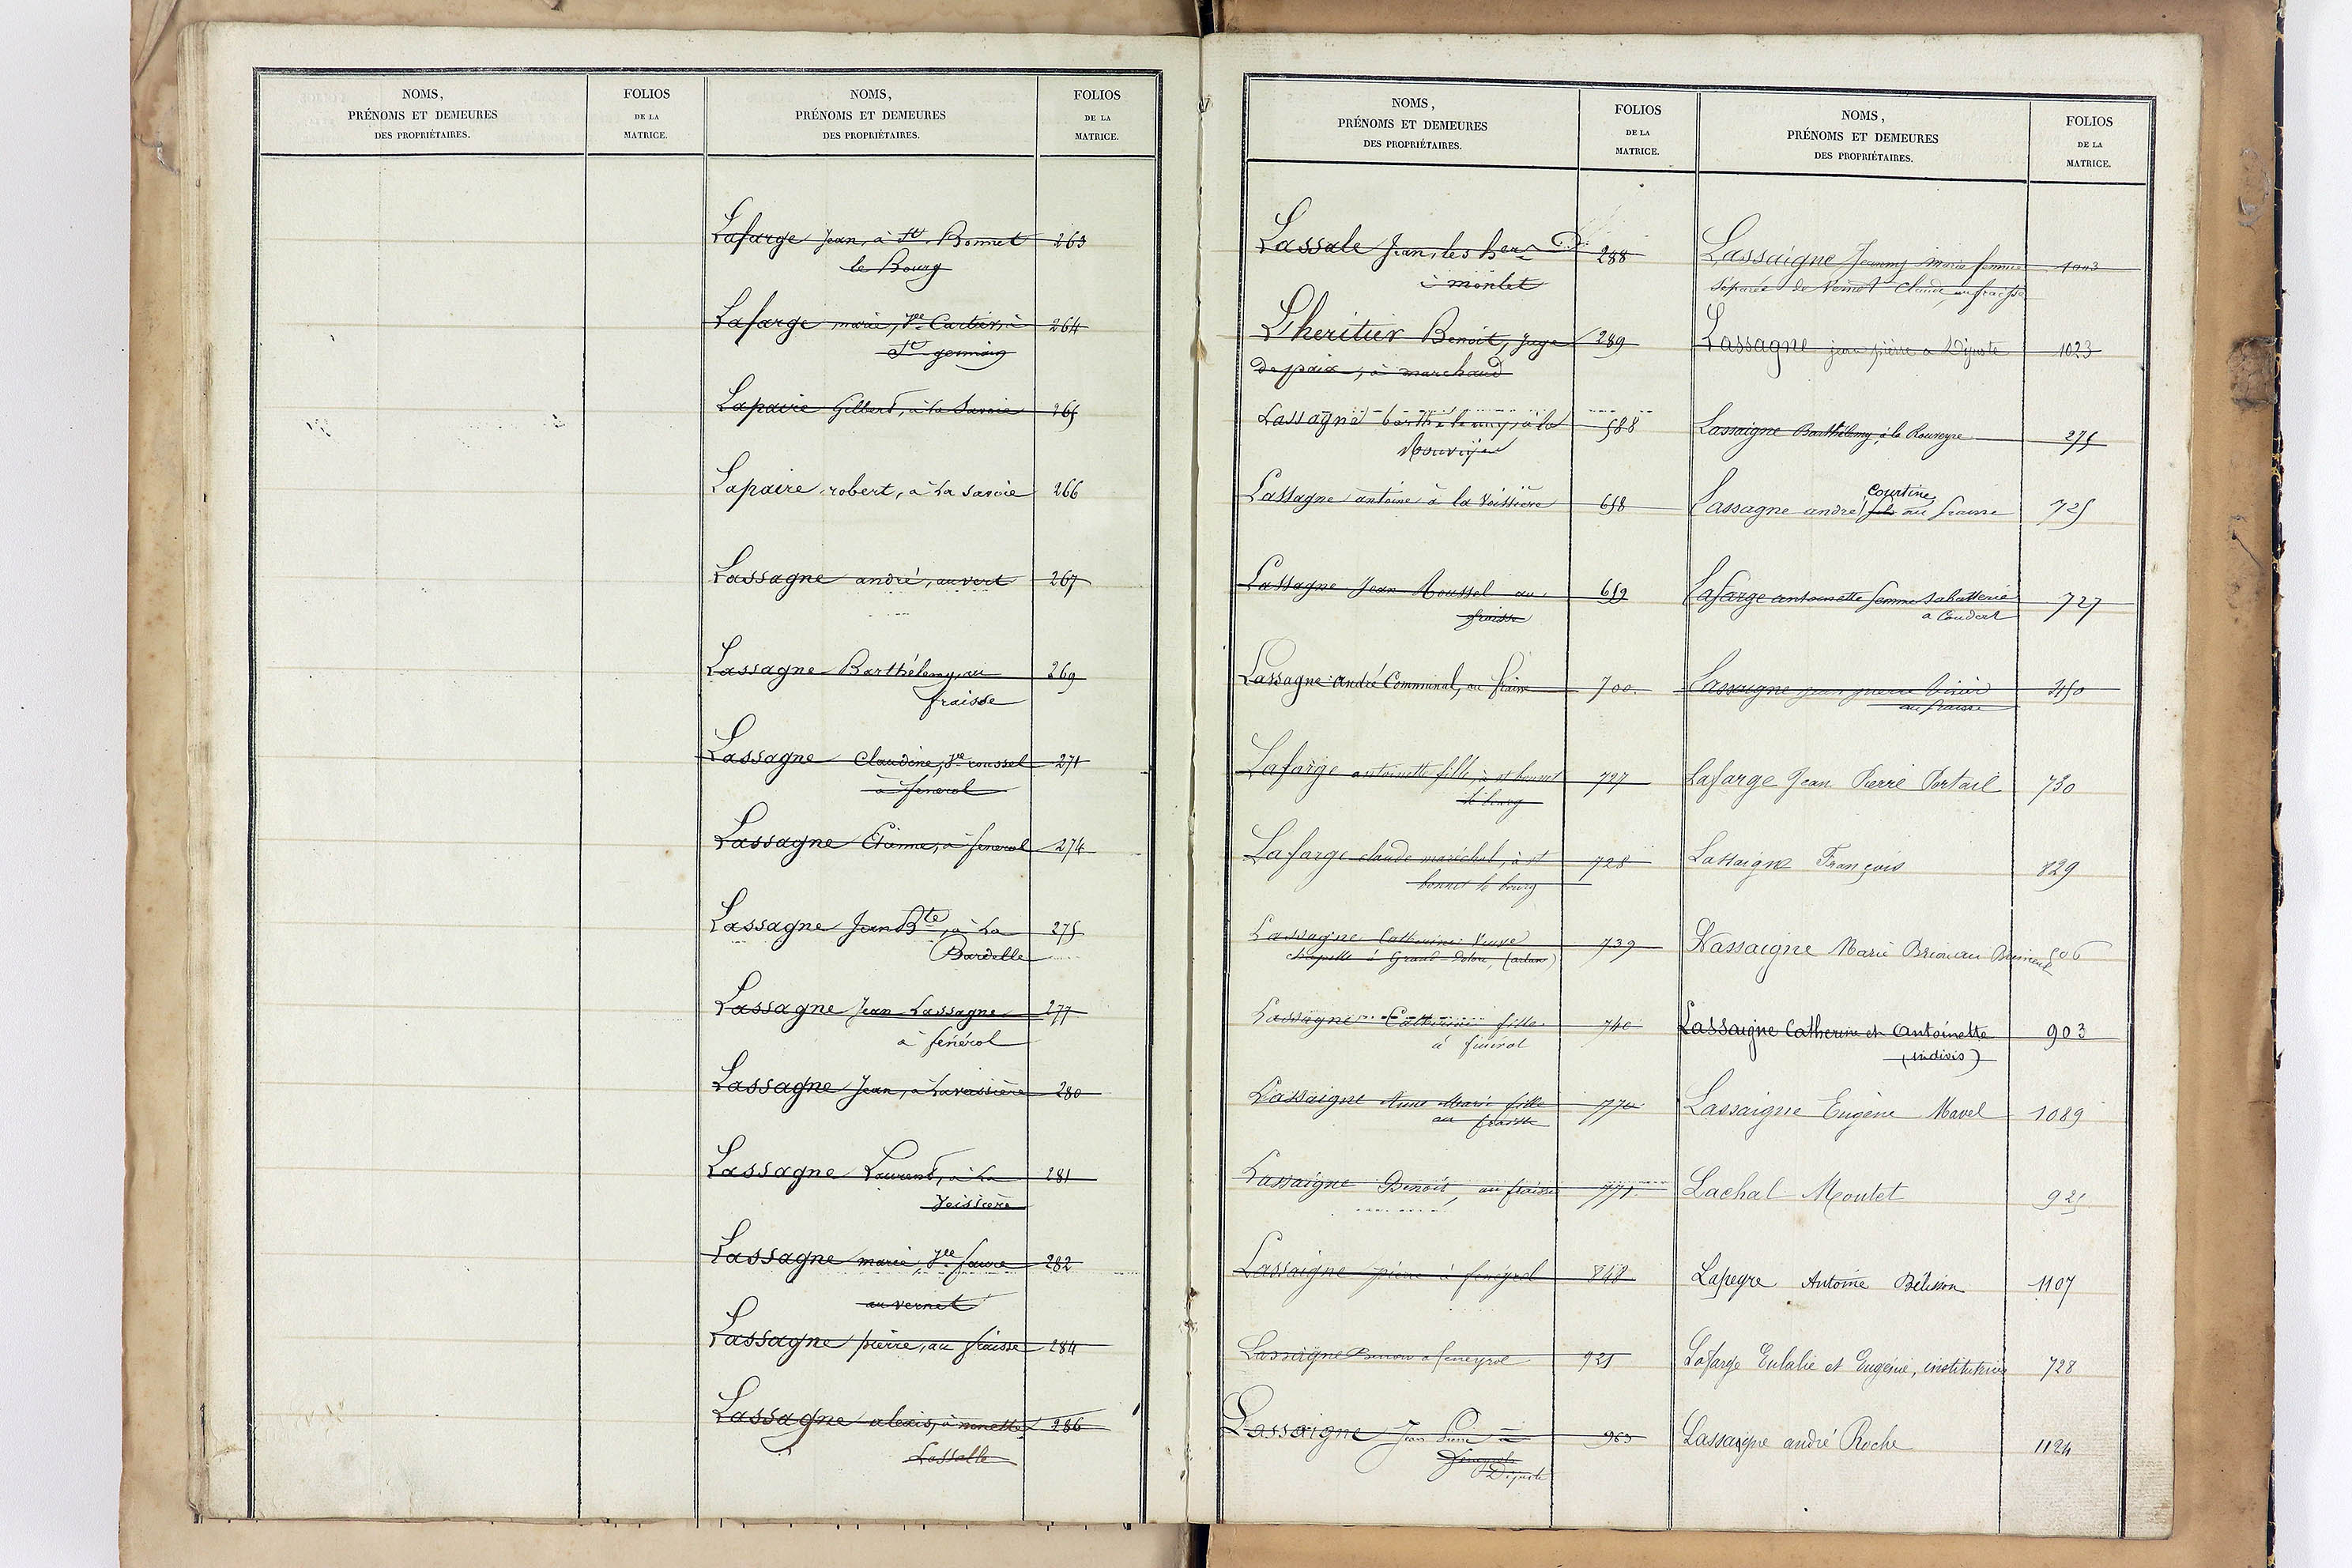 NOMS,
PRÉNOMS ET DEMEURES
DES PROPRIÉTAIRES.
FOLIOS
DE LA
MATRICE.
NOMS,
PRÉNOMS ET DEMEURES
DES PROPRIÉTAIRES.
FOLIOS
DE LA
MATRICE.
Lafarge Jean, à St. Bonnet 263
le Bourg
Lafarge marie, Ve Cartier, à 264
St germain
Lapaire Gilbert, à la Savoie 265
Lapaire robert, à la savoie 266
Lassagne andré, au vert 267
Lassagne Barthélemy, au 269
fraisse
Lassagne Claudine, Ve roussel 271
à fenerol
Lassagne Etienne, à fenerol 274
Lassagne Jean Bte, à La 275
Bardelle
Lassagne Jean Lassagne 277
à fenérol
Lassagne Jean, à Lavaissière 280
Lassagne Laurent, à La 281
Veissière
Lassagne marie, Ve faure 282
au vernet
Lassagne pierre, au fraisse 284
Lassagne alexis, à nonette 286
Lassalle
NOMS,
PRÉNOMS ET DEMEURES
DES PROPRIÉTAIRES.
FOLIOS
DE LA
MATRICE.
Lassale Jean, les hers 288
à monlet
Lheritier Benoit, juge 289
de paix, à marchaud
Lassagne barthelemy, à la 588
Lassagne antoine à la Voissière 658
Lassagne Jean Roussel au 659
fraisse
Lassagne André Communal, au fraisse 700
Lafarge antoinette fille, à st bonnet 727
le bourg
Lafarge claude maréchal, à st 728
bonnet le bourg
Lassagne Catherine Veuve 739
Chapelle à Grand-Dolore, (arlanc)
Lassagne Catherine fille 740
à finérol
Lassaigne Anne Marie fille 770
au fraisse
Lassaigne Benoit, au fraisse 771
Lassaigne pierre à fenéyrol 848
Lassaigne Benoit à feneyrol 921
Lassaigne Jean Pierre à 963
Dijuste
NOMS,
PRÉNOMS ET DEMEURES
DES PROPRIÉTAIRES.
FOLIOS
DE LA
MATRICE.
Lassaigne Jeanny marie femme 1003
séparée de Vernet Claude, au fraisse
Lassagne jean pierre a Dijuste 1023
Lassaigne Barthélemy, à la Rouveyre 275
Courtine
Lassagne andré fils au fraisse 725
Lafarge antoinette femme Sabatterie 727
a Coudert
Lassaigne jean pierre
au fraisse
Lafarge Jean Pierre Portail 730
Lassaigne François 829
Lassaigne Marie Brion au
Lassaigne Catherine et Antoinette 903
(indivis)
Lassaigne Eugène Mavel 1089
Lachal Moutet 921
Lapeyre Antoine Bélisson 1107
Lafarge Eulalie et Eugénie, institutrices 728
Lassaigne andré Roche 1124